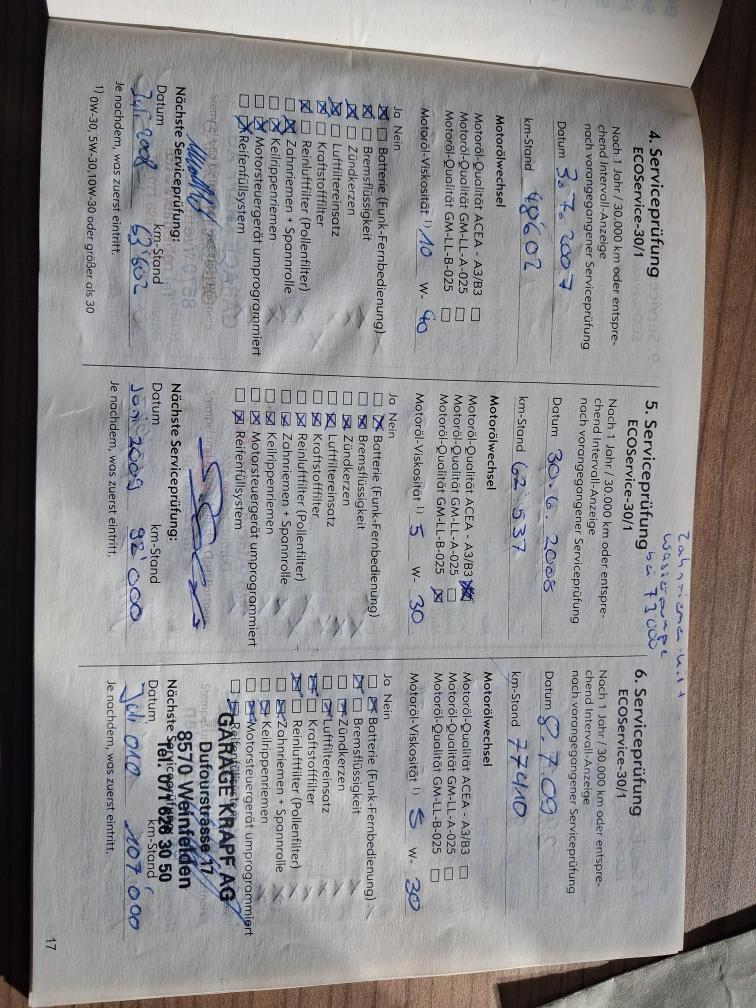 4. Serviceprüfung
ECOService-30/1
Nach 1 Jahr / 30.000 km oder entspre-
chend Intervall-Anzeige
nach vorangegangener Serviceprüfung
Datum 3.7.2007
km-Stand 48602
Motorölwechsel
Motoröl-Qualität ACEA - A3/B3
Motoröl-Qualität GM-LL-A-025
Motoröl-Qualität GM-LL-B-025
Motoröl-Viskosität 1) 10 W- 40
Ja Nein
Batterie (Funk-Fernbedienung)
Bremsflüssigkeit
Zündkerzen
Luftfiltereinsatz
Kraftstofffilter
Reinluftfilter (Pollenfilter)
Zahnriemen + Spannrolle
Keilrippenriemen
Motorsteuergerät umprogrammiert
Reifenfüllsystem
Nächste Serviceprüfung:
Datum km-Stand
Juli 2008 63'602
Je nachdem, was zuerst eintritt.
1) 0W-30, 5W-30,10W-30 oder größer als 30
Zahnriemen-Kit
Wasserpumpe
bei 73000
5. Serviceprüfung
ECOService-30/1
Nach 1 Jahr / 30.000 km oder entspre-
chend Intervall-Anzeige
nach vorangegangener Serviceprüfung
Datum 30.6.2008
km-Stand 62'537
Motorölwechsel
Motoröl-Qualität ACEA - A3/B3
Motoröl-Qualität GM-LL-A-025
Motoröl-Qualität GM-LL-B-025
Motoröl-Viskosität 1) 5 W- 30
Ja Nein
Batterie (Funk-Fernbedienung)
Bremsflüssigkeit
Zündkerzen
Luftfiltereinsatz
Kraftstofffilter
Reinluftfilter (Pollenfilter)
Zahnriemen + Spannrolle
Keilrippenriemen
Motorsteuergerät umprogrammiert
Reifenfüllsystem
Nächste Serviceprüfung:
Datum km-Stand
Juni 2009 92'000
Je nachdem, was zuerst eintritt.
6. Serviceprüfung
ECOService-30/1
Nach 1 Jahr / 30.000 km oder entspre-
chend Intervall-Anzeige
nach vorangegangener Serviceprüfung
Datum 8.7.09
km-Stand 77410
Motorölwechsel
Motoröl-Qualität ACEA - A3/B3
Motoröl-Qualität GM-LL-A-025
Motoröl-Qualität GM-LL-B-025
Motoröl-Viskosität 1) 5 W- 30
Ja Nein
Batterie (Funk-Fernbedienung)
Bremsflüssigkeit
Zündkerzen
Luftfiltereinsatz
Kraftstofffilter
Reinluftfilter (Pollenfilter)
Zahnriemen + Spannrolle
Keilrippenriemen
Motorsteuergerät umprogrammiert
Reifenfüllsystem
GARAGE KRAPF AG
Dufourstrasse 17
8570 Weinfelden
Tel. 071 626 30 50
Nächste Serviceprüfung:
Datum km-Stand
Juli 010 107'000
Je nachdem, was zuerst eintritt.
17